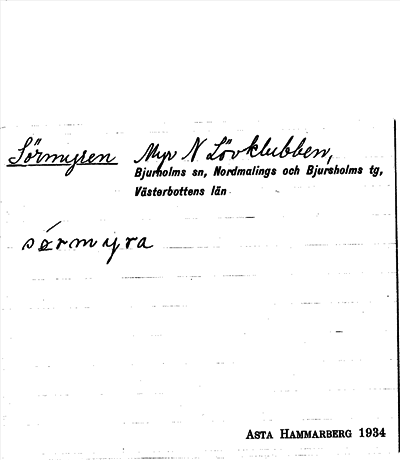 Sörmyren Myr N Lövklubben,
Bjurholms sn, Nordmalings och Bjursholms tg,
Västerbottens län
sǿrmyra
ASTA HAMMARBERG 1934